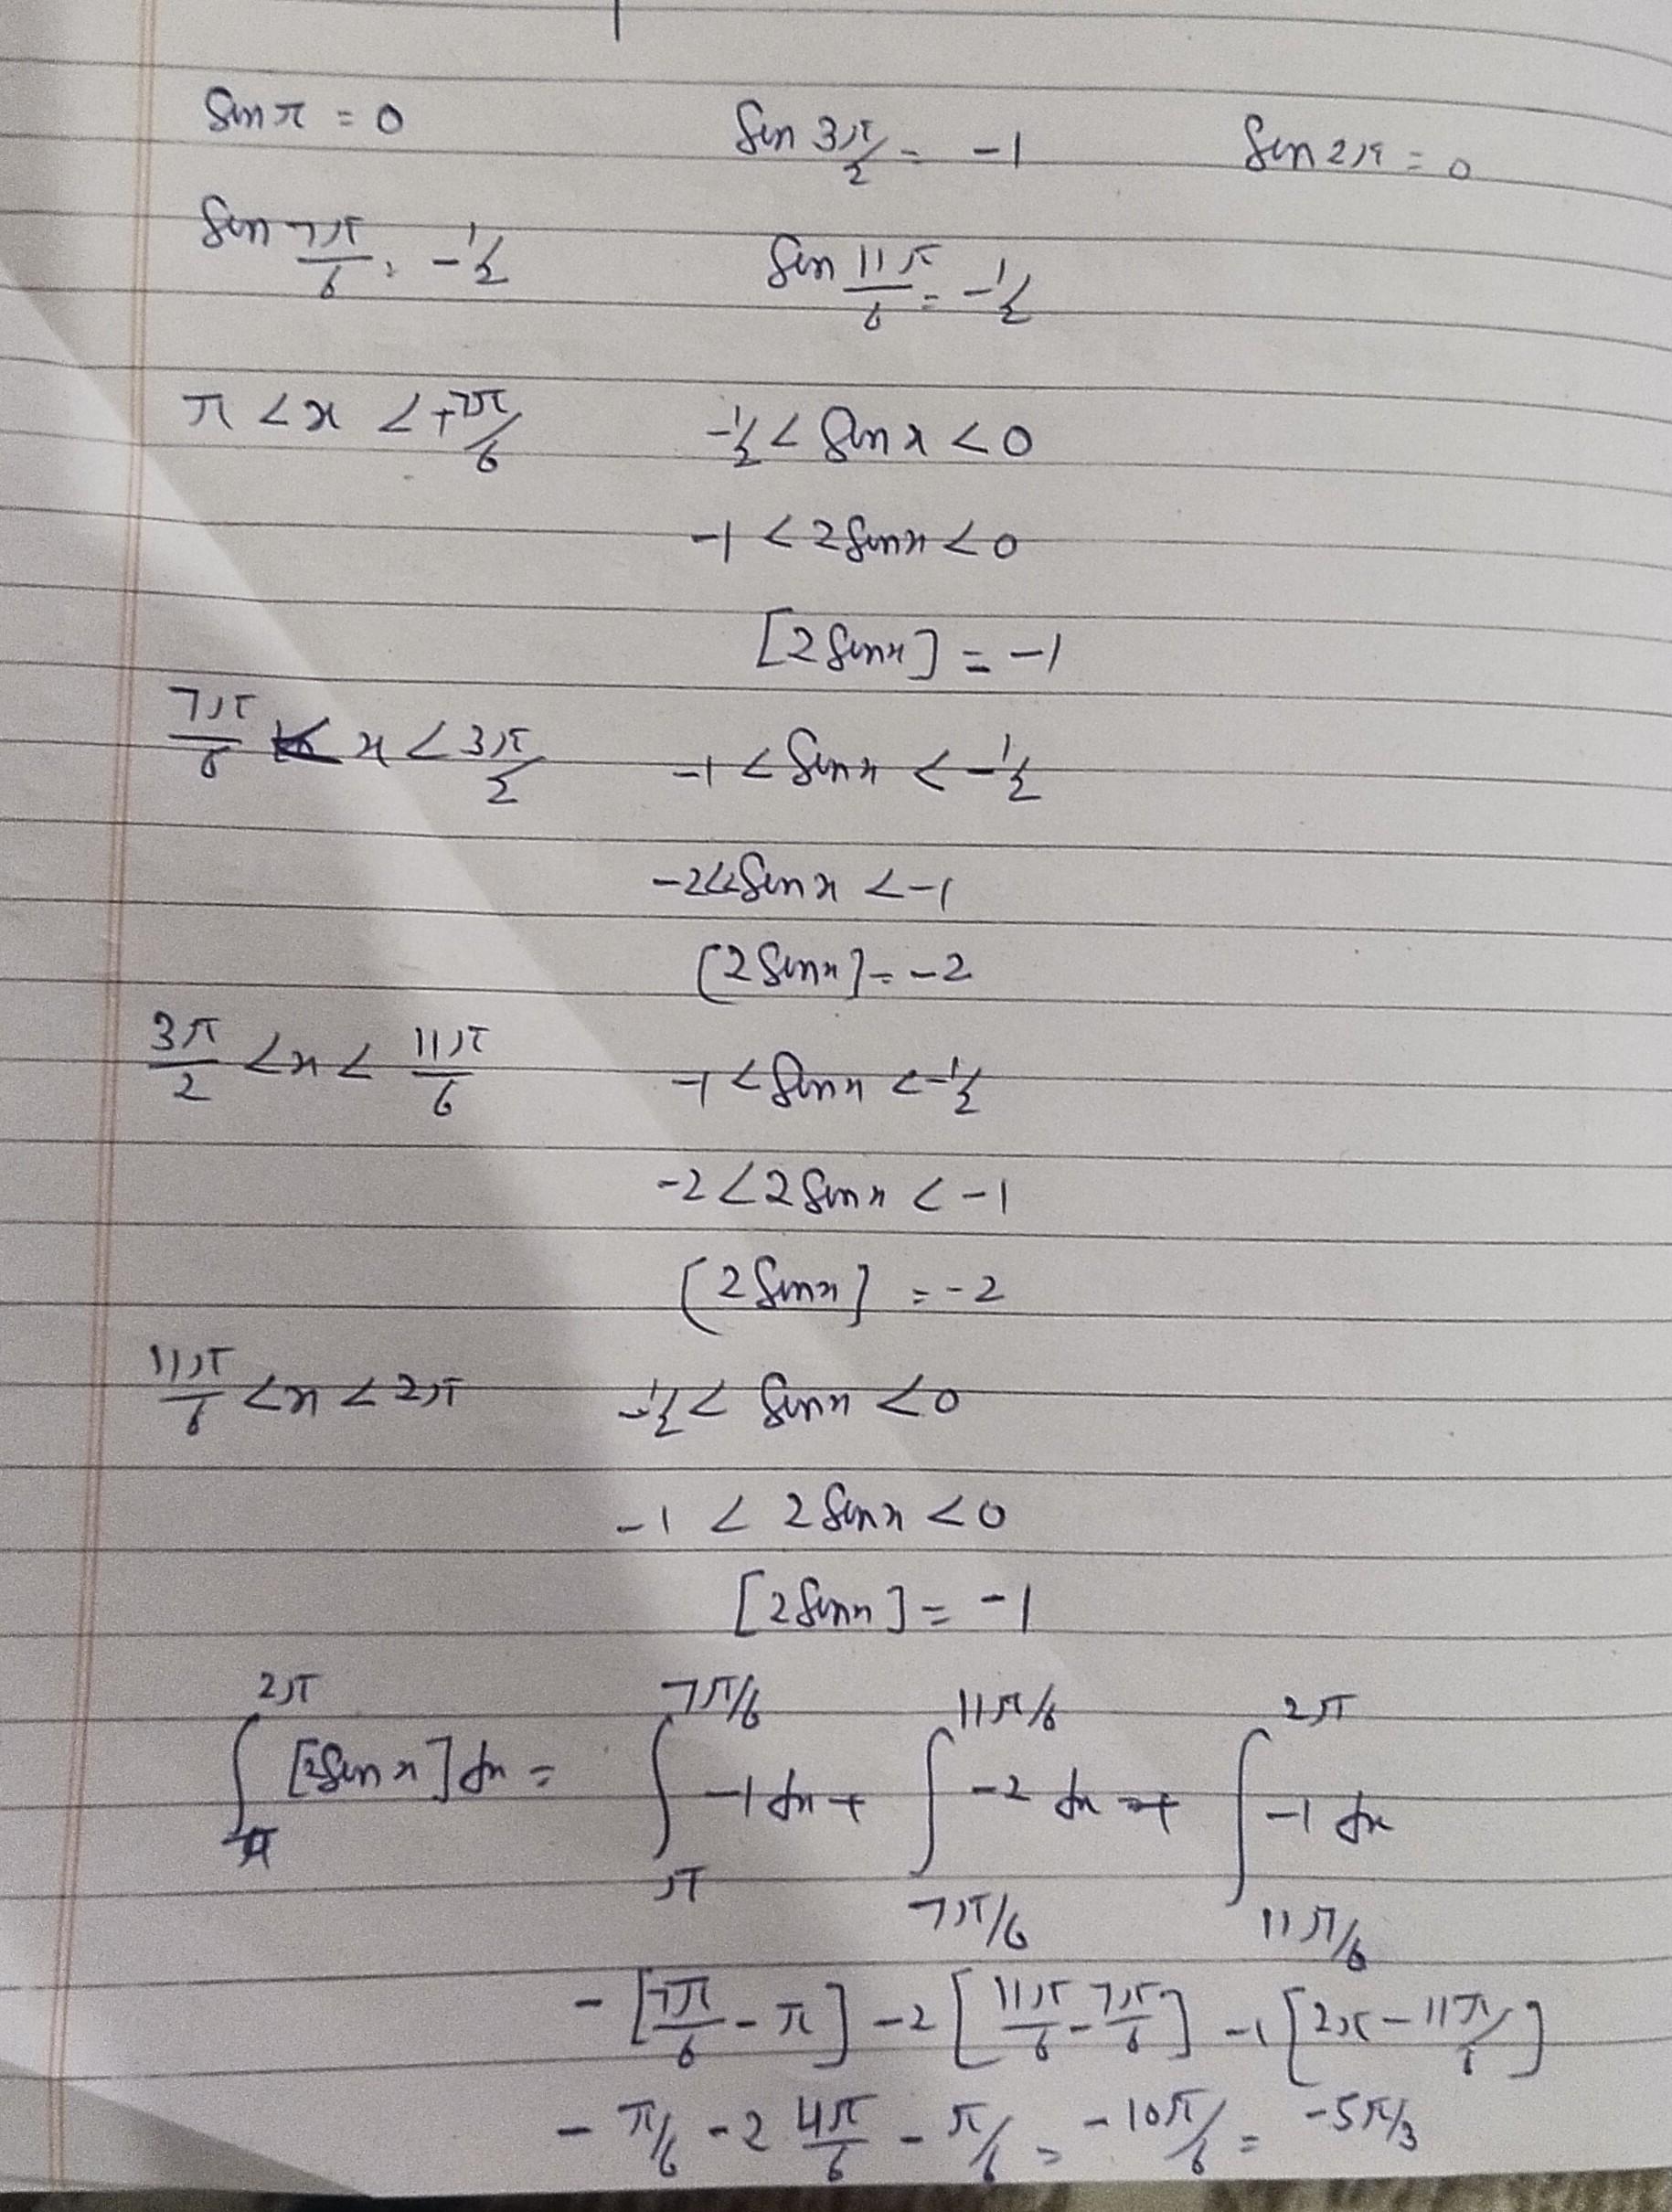 Sin π = 0 Sin 3π/2 = -1 Sin 2π = 0
Sin 7π/6 = -1/2 Sin 11π/6 = -1/2
π < x < 7π/6 -1/2 < Sin x < 0
-1 < 2 Sin x < 0
[2 Sin x] = -1
7π/6 < x < 3π/2 -1 < Sin x < -1/2
-2 < 2 Sin x < -1
[2 Sin x] = -2
3π/2 < x < 11π/6 -1 < Sin x < -1/2
-2 < 2 Sin x < -1
[2 Sin x] = -2
11π/6 < x < 2π -1/2 < Sin x < 0
-1 < 2 Sin x < 0
[2 Sin x] = -1
∫_π^2π [2 Sin x] dx = ∫_π^7π/6 -1 dx + ∫_7π/6^11π/6 -2 dx + ∫_11π/6^2π -1 dx
- [7π/6 - π] - 2 [11π/6 - 7π/6] - 1 [2π - 11π/6]
- π/6 - 2 4π/6 - π/6 = -10π/6 = -5π/3